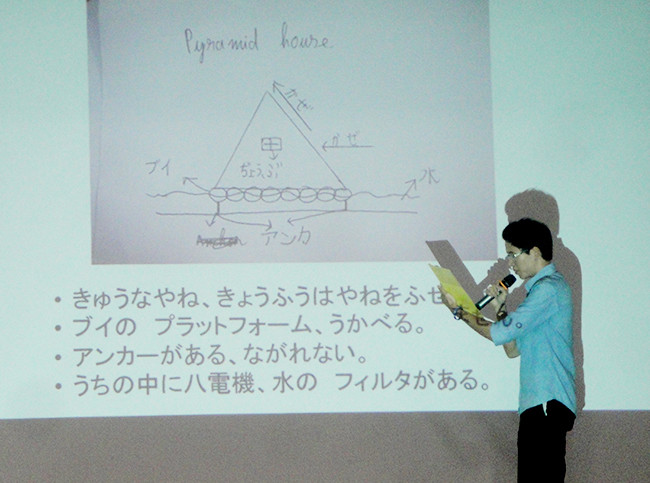 Pyramid house
かぜ
かぜ
ブイ
ちょうぶ
水
アンカ
・きゅうなやね、きょうふうはやねをふせ
・ブイの プラットフォーム、うかべる。
・アンカーがある、ながれない。
・うちの中に八電機、水の フィルタがある。